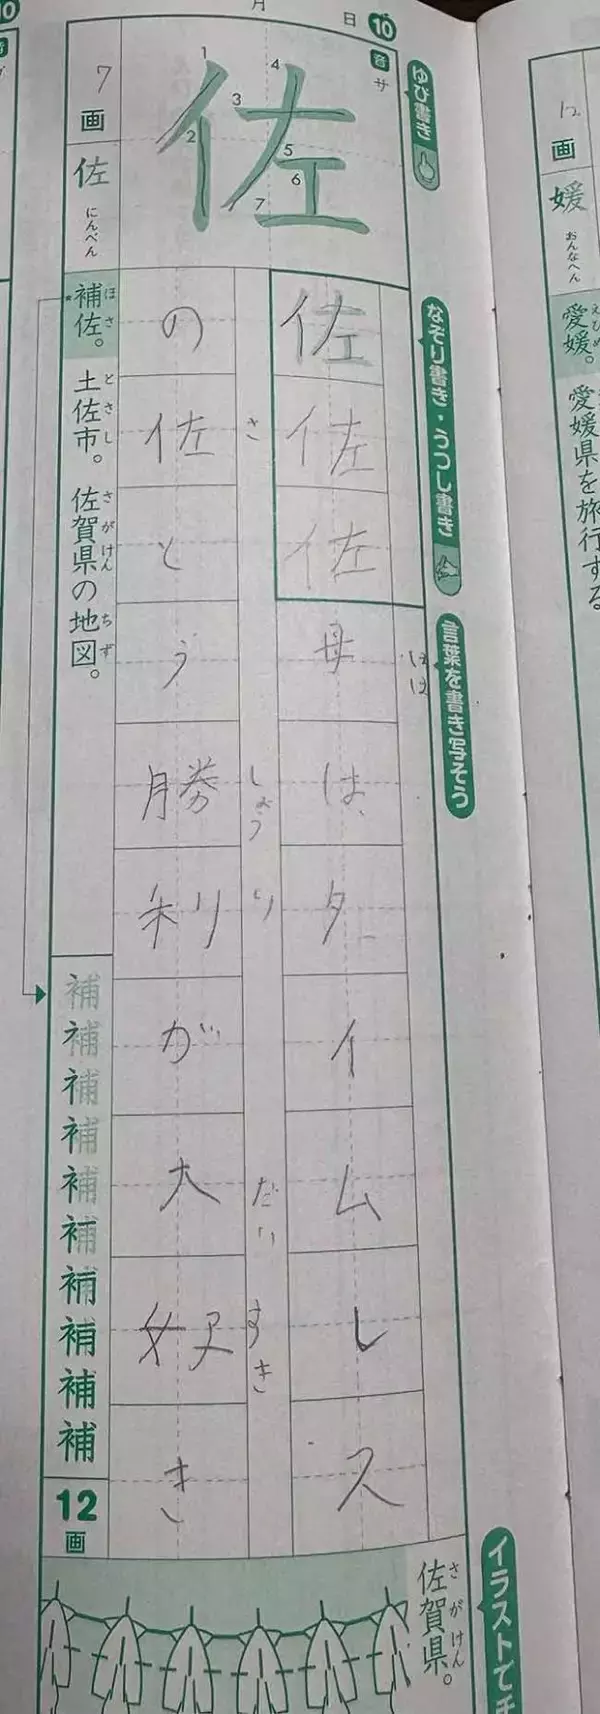 月 日 10
ゆび書き
音 サ
佐
1 2 3 4 5 6 7
7画
佐 にんべん
なぞり書き・うつし書き
佐 佐 佐
言葉を書き写そう
はは
母は、タイムレス
さ しょう り だい すき
の佐とう勝利が大好き
ほさ とさし さがけん ちず
補佐。土佐市。佐賀県の地図。
補補補補補補補補補補
12画
イラストで
さがけん
佐賀県。
12画
媛 おんなへん
えひめ
愛媛。愛媛県を旅行する
10
音